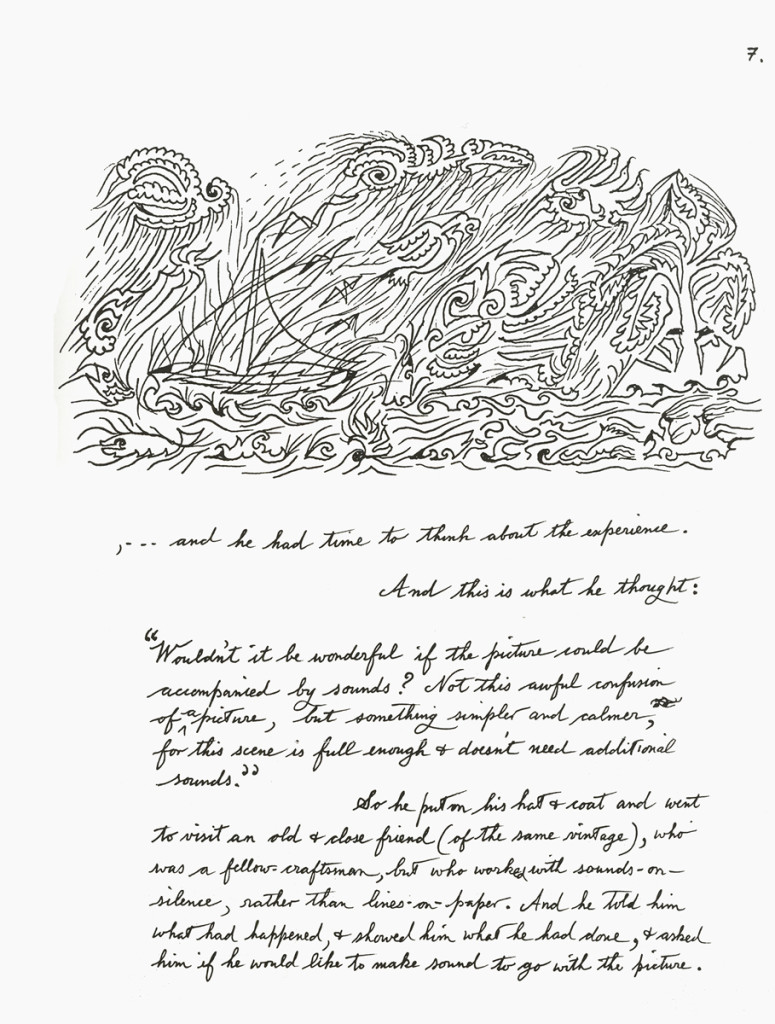 7.
,--- and he had time to think about the experience.
And this is what he thought:
"Wouldn't it be wonderful if the picture could be
accompanied by sounds? Not this awful confusion
of a picture, but something simpler and calmer,
for this scene is full enough & doesn't need additional
sounds."
So he put on his hat & coat and went
to visit an old & close friend (of the same vintage), who
was a fellow-craftsman, but who worked with sounds-on-
silence, rather than lines-on-paper. And he told him
what had happened, & showed him what he had done, & asked
him if he would like to make sound to go with the picture.